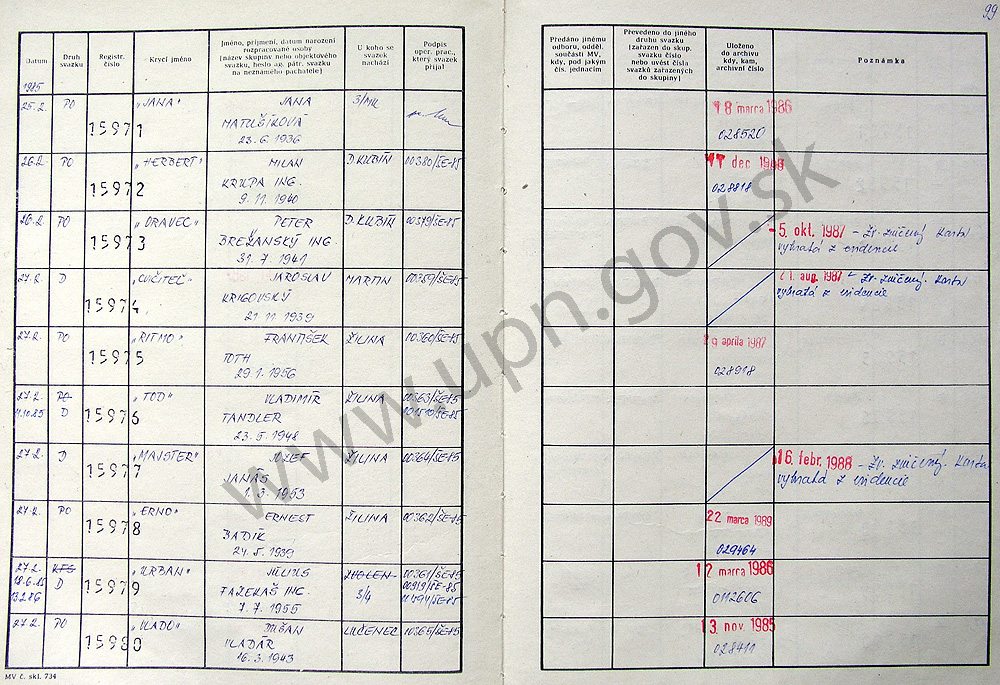 99
Datum
Druh svazku
Registr. číslo
Krycí jméno
Jméno, příjmení, datum narození rozpracované osoby
(název skupiny nebo objektového svazku, heslo ag. pátr. svazku na neznámého pachatele)
U koho se svazek nachází
Podpis oper. prac., který svazek přijal
Předáno jinému odboru, odděl. součásti MV, kdy, pod jakým čís. jednacím
Převedeno do jiného druhu svazku
(zařazen do skup. svazku číslo nebo uvést čísla svazků zařazených do skupiny)
Uloženo do archivu kdy, kam, archivní číslo
Poznámka
1985
25.2. PO 15971 "JANA" JANA
MATUŠÍKOVÁ
23.6.1936
18 marca 1986
028520
26.2. PO 15972 "HERBERT" MILAN D.KUBÍN 00380/ŠE-85
KRUPA ING.
9.11.1940
dec
028818
26.2. PO 15973 "ORAVEC" PETER D.KUBÍN 00379/ŠE-85
BREŽANSKÝ ING
31.7.1941
-5. okt. 1987 - Zv. zničený. Karta
vybratá z evidencie
27.2. D 15974 "CVIČITEĽ" JAROSLAV MARTIN 00359/ŠE-85
KRIGOVSKÝ
21.11.1939
21. aug. 1987 - Zv. zničený. Karta
vybratá z evidencie
27.2. PO 15975 "RITMO" FRANTIŠEK ŽILINA 00360/ŠE-85
TOTH
29.1.1956
aprila 1987
028918
27.2. PO 15976 "TOD" VLADIMÍR ŽILINA 00363/ŠE-85
11.10.85 D TANDLER
23.5.1948
27.2. D 15977 "MAJSTER" JOZEF ŽILINA 00364/ŠE-85
JANÁŠ
1.3.1953
16. febr. 1988 - Zv. zničený. Karta
vybratá z evidencie
27.2. PO 15978 "ERNO" ERNEST ŽILINA 00362/ŠE-85
BADÍK
24.5.1939
22 marca 1989
029464
27.2. 15979 "URBAN" JÚLIUS ZVOLEN 00361/ŠE-85
18.6.85 D FAZEKAŠ ING. 3/4 00919/ŠE-85
13.2.86 7.7.1955
12 marca 1986
0112606
27.2. PO 15980 "VLADO" DUŠAN LUČENEC 10365/ŠE-85
VLADÁR
16.3.1943
13. nov. 1985
028411
MV č. skl. 734
www.upn.gov.sk